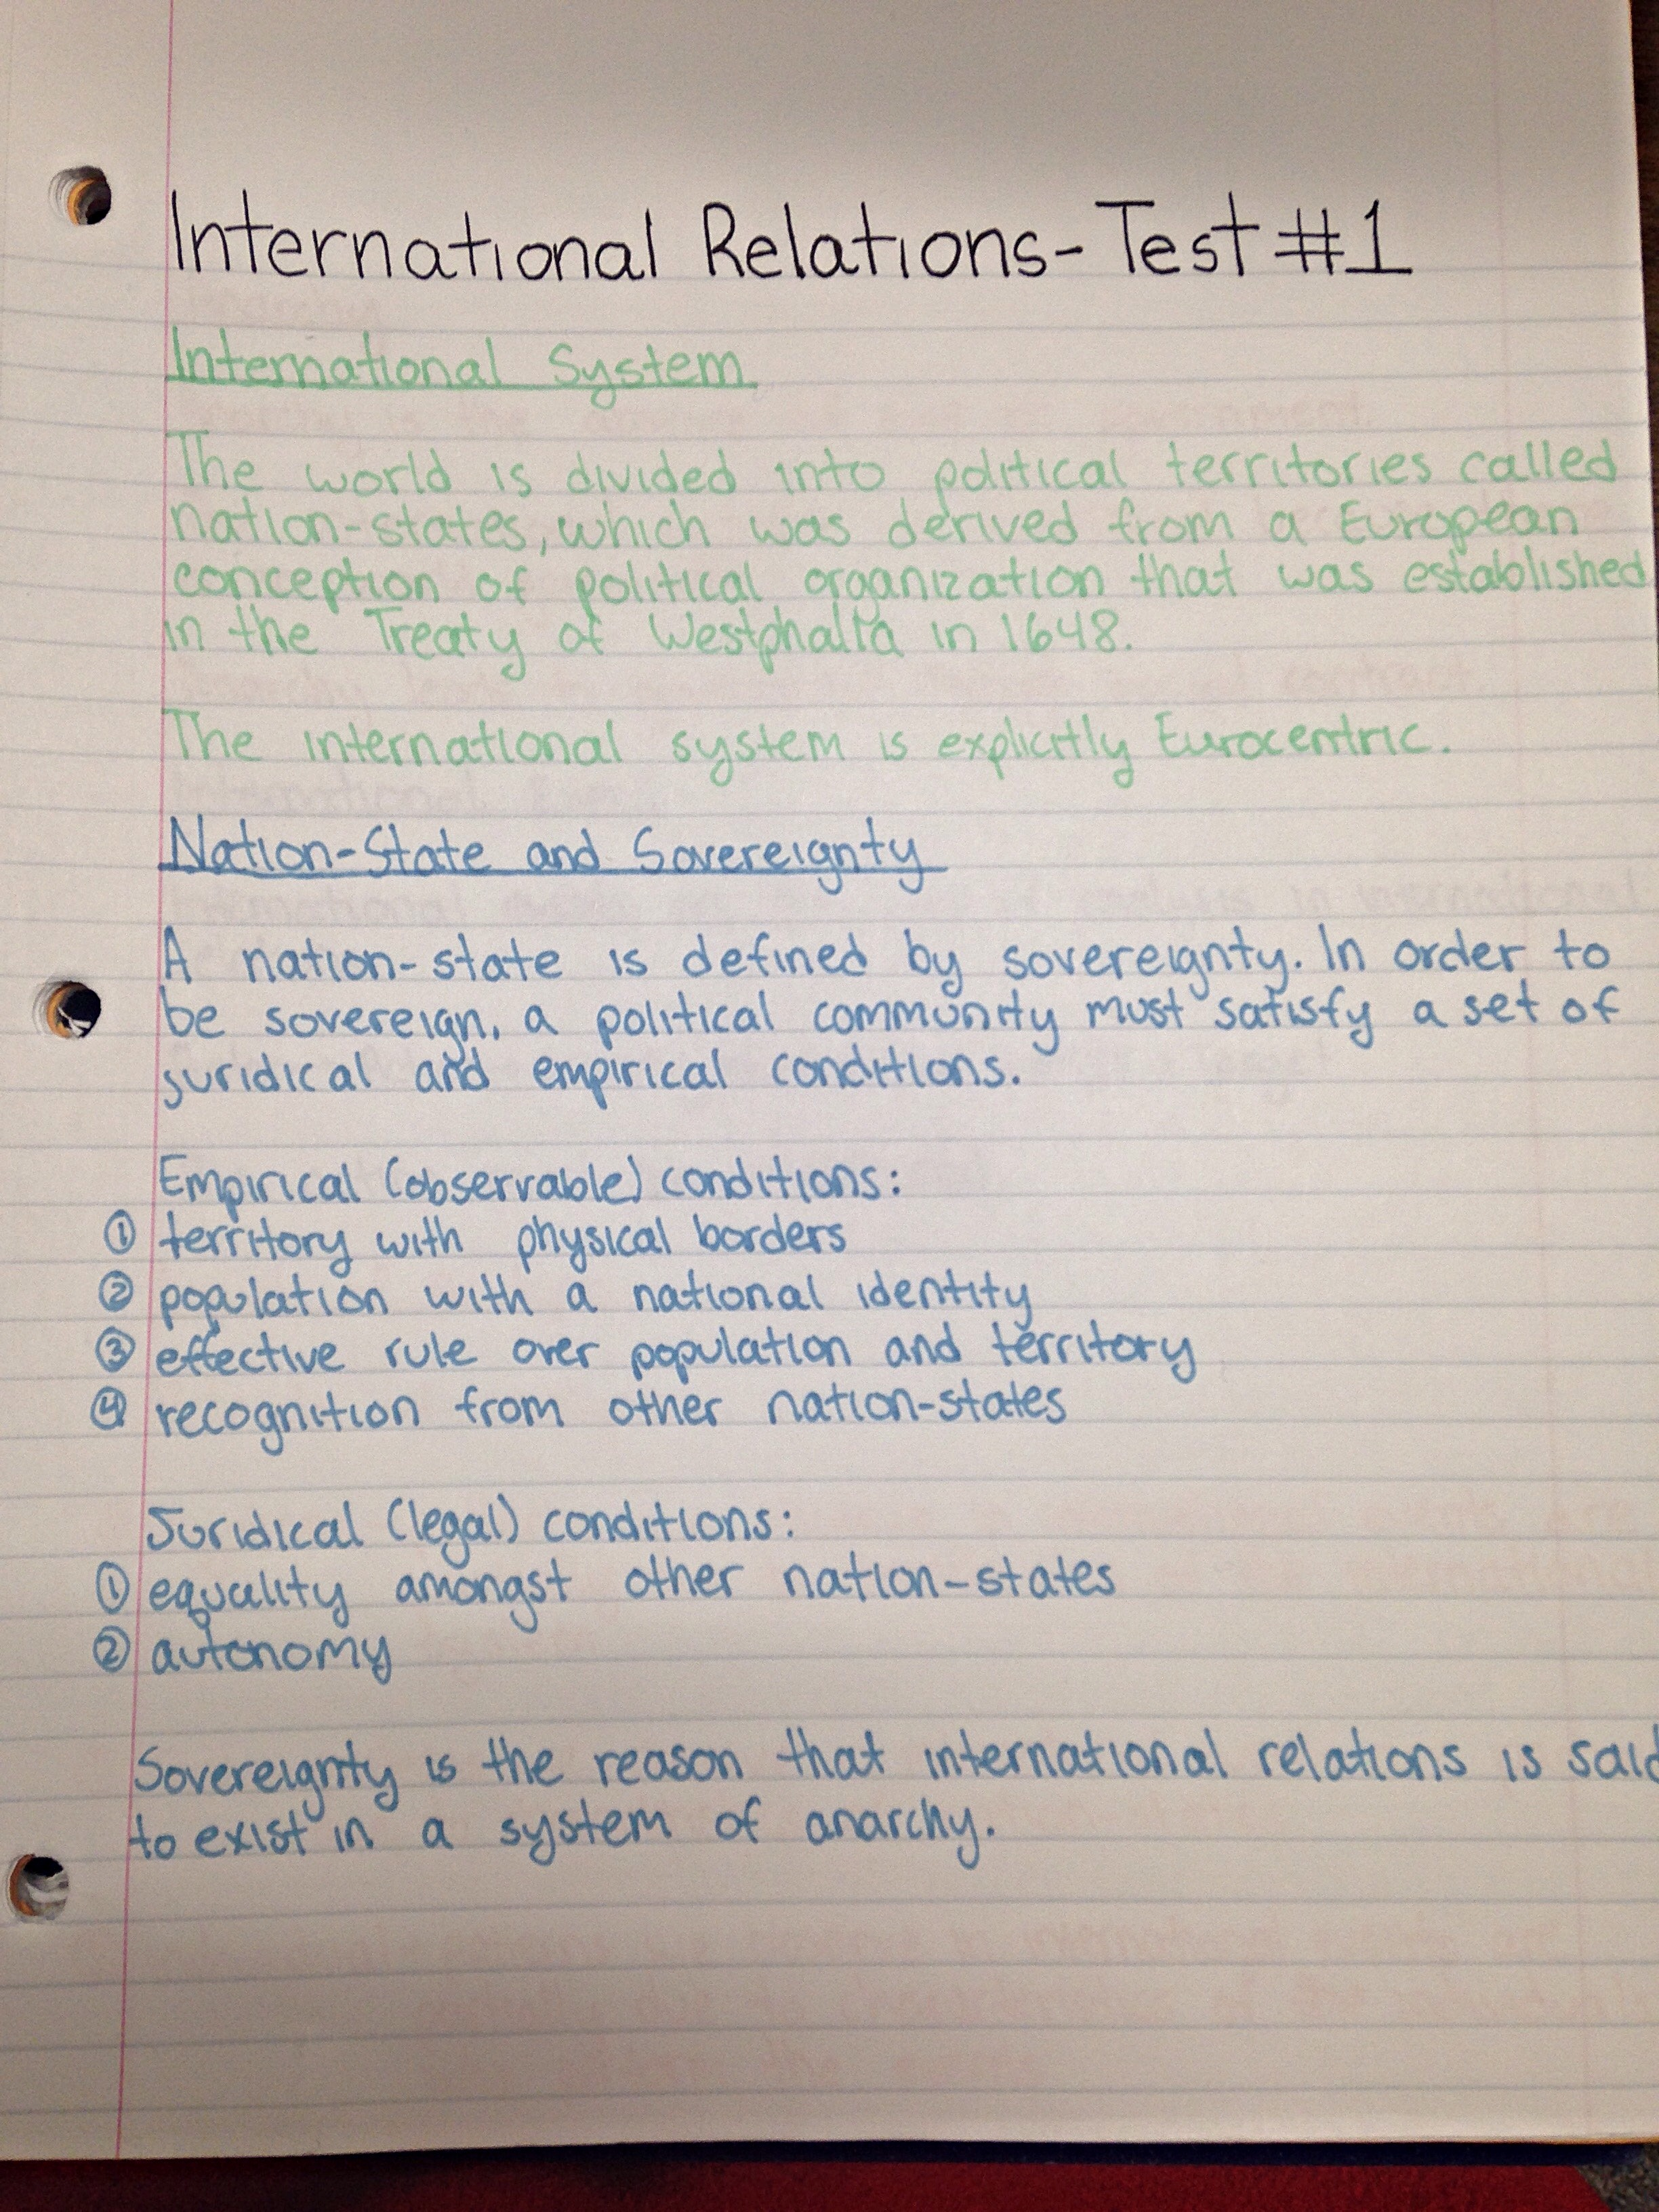 International Relations-Test #1
International System
The world is divided into political territories called
nation-states, which was derived from a European
conception of political organization that was established
in the Treaty of Westphalia in 1648.
The international system is explicitly Eurocentric.
Nation-State and Sovereignty
A nation-state is defined by sovereignty. In order to
be sovereign, a political community must satisfy a set of
juridical and empirical conditions.
Empirical (observable) conditions:
① territory with physical borders
② population with a national identity
③ effective rule over population and territory
④ recognition from other nation-states
Juridical (legal) conditions:
① equality amongst other nation-states
② autonomy
Sovereignty is the reason that international relations is said
to exist in a system of anarchy.